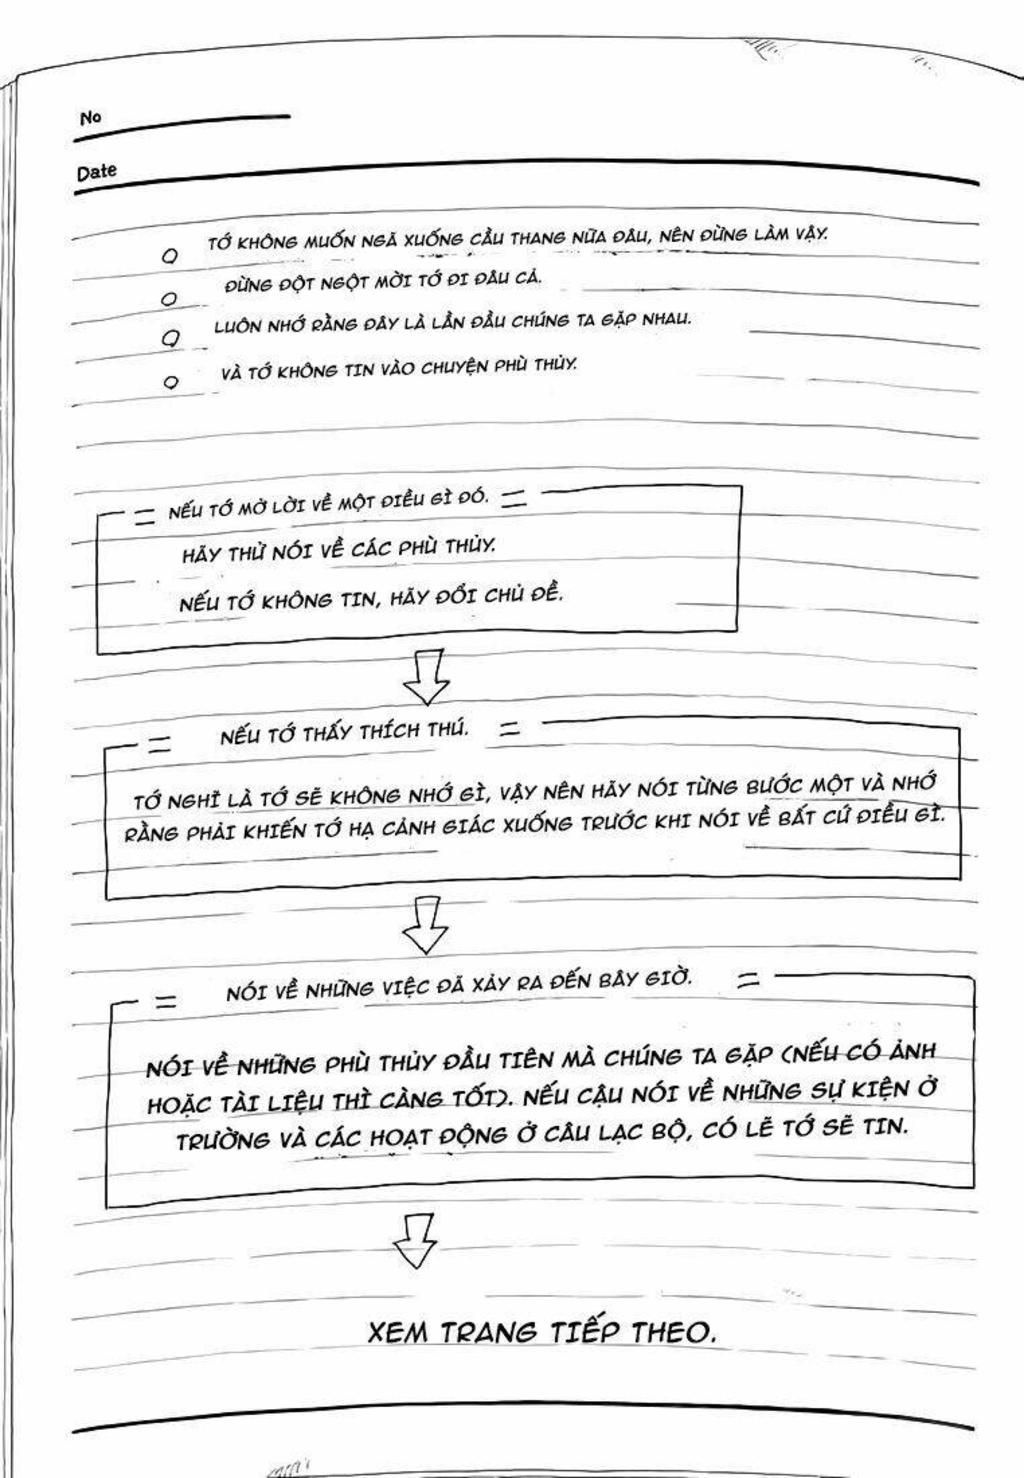 No
Date
TỚ KHÔNG MUỐN NGÃ XUỐNG CẦU THANG NỮA ĐÂU, NÊN ĐỪNG LÀM VẬY.
ĐỪNG ĐỘT NGỘT MỜI TỚ ĐI ĐÂU CẢ.
LUÔN NHỚ RẰNG ĐÂY LÀ LẦN ĐẦU CHÚNG TA GẶP NHAU.
VÀ TỚ KHÔNG TIN VÀO CHUYỆN PHÙ THỦY.
= NẾU TỚ MỞ LỜI VỀ MỘT ĐIỀU GÌ ĐÓ. =
HÃY THỬ NÓI VỀ CÁC PHÙ THỦY.
NẾU TỚ KHÔNG TIN, HÃY ĐỔI CHỦ ĐỀ.
= NẾU TỚ THẤY THÍCH THÚ. =
TỚ NGHĨ LÀ TỚ SẼ KHÔNG NHỚ GÌ, VẬY NÊN HÃY NÓI TỪNG BƯỚC MỘT VÀ NHỚ
RẰNG PHẢI KHIẾN TỚ HẠ CẢNH GIÁC XUỐNG TRƯỚC KHI NÓI VỀ BẤT CỨ ĐIỀU GÌ.
= NÓI VỀ NHỮNG VIỆC ĐÃ XẢY RA ĐẾN BÂY GIỜ. =
NÓI VỀ NHỮNG PHÙ THỦY ĐẦU TIÊN MÀ CHÚNG TA GẶP (NẾU CÓ ẢNH
HOẶC TÀI LIỆU THÌ CÀNG TỐT). NẾU CẬU NÓI VỀ NHỮNG SỰ KIỆN Ở
TRƯỜNG VÀ CÁC HOẠT ĐỘNG Ở CÂU LẠC BỘ, CÓ LẼ TỚ SẼ TIN.
XEM TRANG TIẾP THEO.